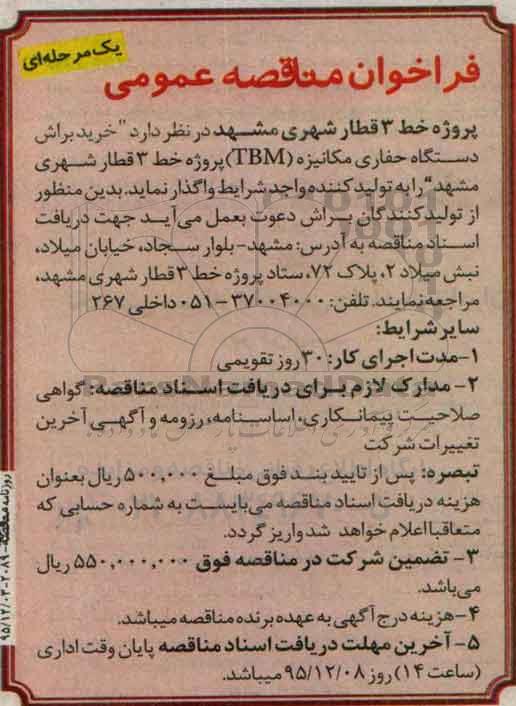 یک مرحله‌ای
فراخوان مناقصه عمومی
پروژه خط ۳ قطار شهری مشهد در نظر دارد "خرید براش
دستگاه حفاری مکانیزه (TBM) پروژه خط ۳ قطار شهری
مشهد" را به تولید کننده واجد شرایط واگذار نماید. بدین منظور
از تولیدکنندگان براش دعوت بعمل می‌آید جهت دریافت
اسناد مناقصه به آدرس: مشهد- بلوار سجاد، خیابان میلاد،
نبش میلاد ۲، پلاک ۷۲، ستاد پروژه خط ۳ قطار شهری مشهد،
مراجعه نمایند. تلفن: ۳۷۰۰۴۰۰۰ - ۰۵۱ داخلی ۲۶۷
سایر شرایط:
۱- مدت اجرای کار: ۳۰ روز تقویمی
۲- مدارک لازم برای دریافت اسناد مناقصه: گواهی
صلاحیت پیمانکاری، اساسنامه، رزومه و آگهی آخرین
تغییرات شرکت
تبصره: پس از تایید بند فوق مبلغ ۵۰۰,۰۰۰ ریال بعنوان
هزینه دریافت اسناد مناقصه می‌بایست به شماره حسابی که
متعاقبا اعلام خواهد شد واریز گردد.
۳- تضمین شرکت در مناقصه فوق ۵۵۰,۰۰۰,۰۰۰ ریال
می‌باشد.
۴- هزینه درج آگهی به عهده برنده مناقصه میباشد.
۵- آخرین مهلت دریافت اسناد مناقصه پایان وقت اداری
(ساعت ۱۴) روز ۹۵/۱۲/۰۸ میباشد.
روزنامه مناقصه - ۲۰۸۹ - ۹۵/۱۲/۰۳